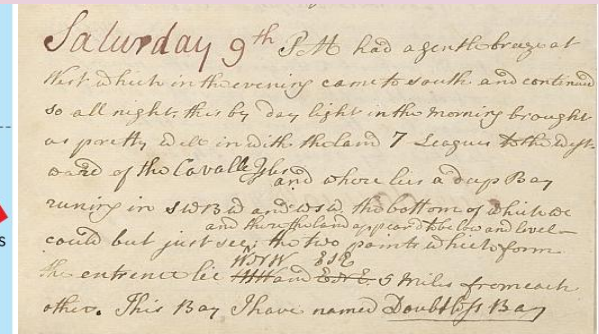 Saturday 9th PM had a gentle breze at
West which in the evening came to south and continued
so all night, this by day light in the morning brought
us pretty well in with the land 7 Leagues to the west-
ward of the Cavalle Isles and where lies a deep Bay
runing in SWBW and WSW the bottom of which we
and there the land appear'd to be low and level
could but just see, the two points which form
WNW ESE
the entrence lie and 5 Miles from each
other. This Bay I have named Doubtless Bay
s